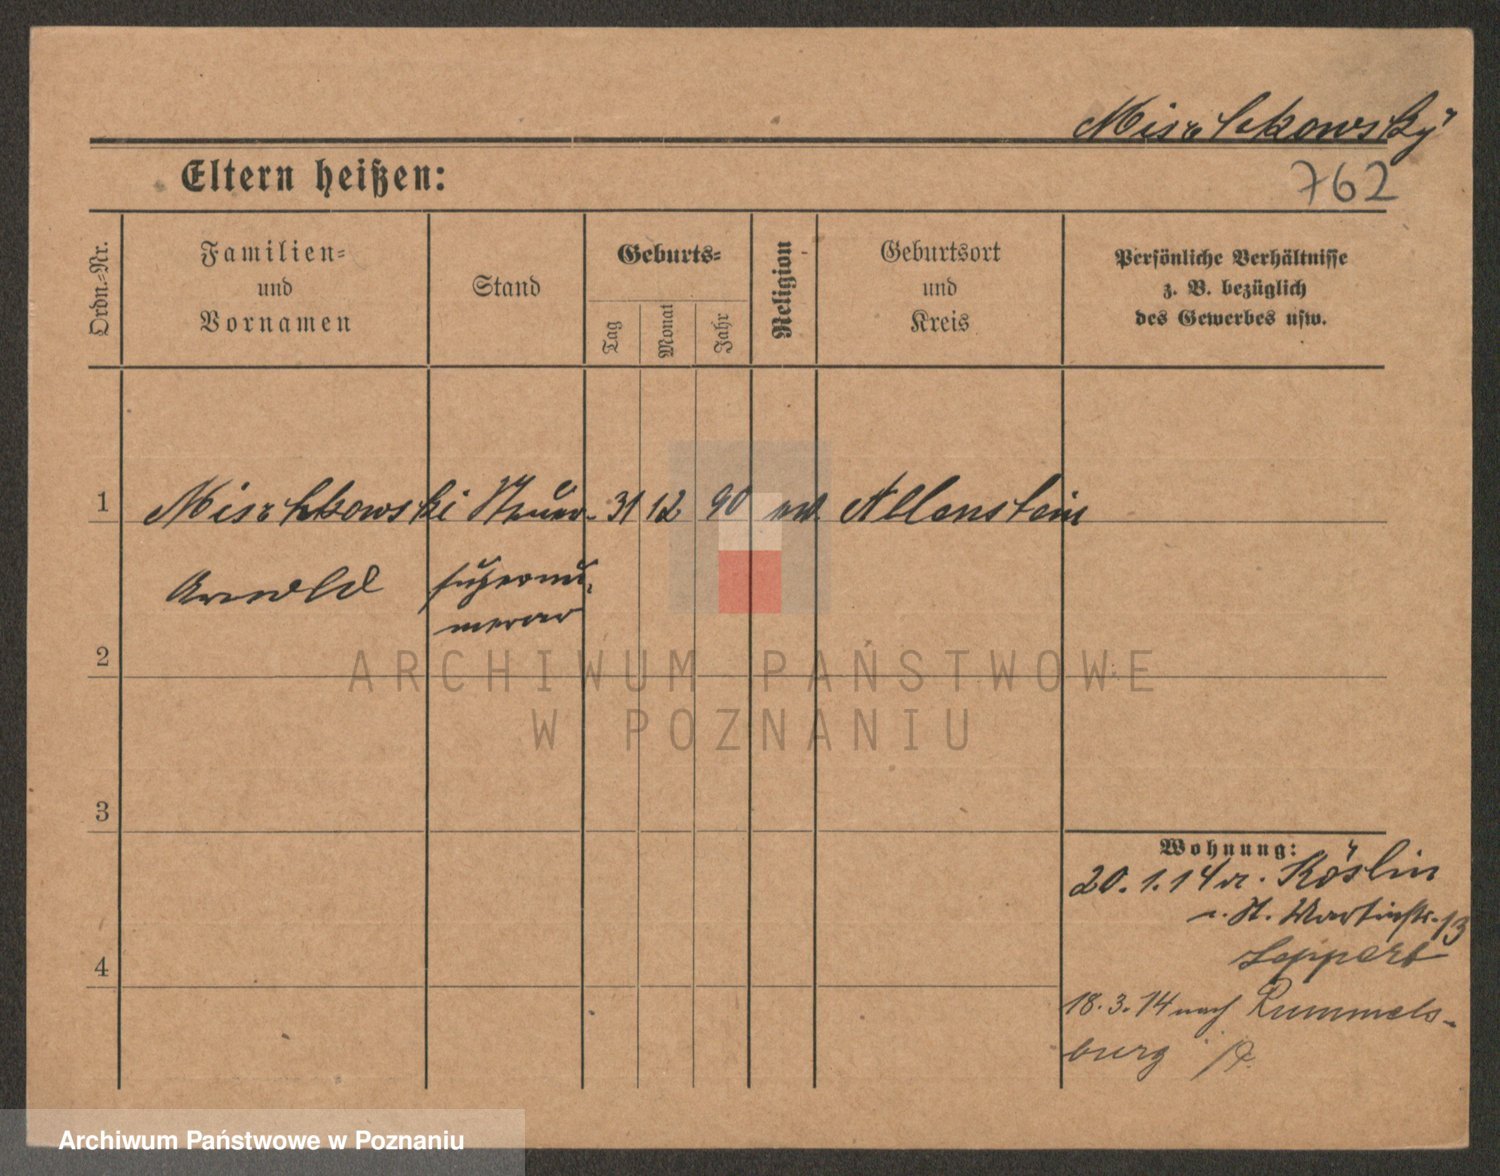 Mischkowsky
762
Eltern heißen:
Ordn.-Nr.
Familien-
und
Vornamen
Stand
Geburts-
Tag
Monat
Jahr
Religion
Geburtsort
und
Kreis
Persönliche Verhältnisse
z. B. bezüglich
des Gewerbes usw.
1 Mischkowski Steuer- 31 12 90 Allenstein
Arnold supernu-
merar
2
ARCHIWUM PAŃSTWOWE
W POZNANIU
3
Wohnung:
20.1.14 v. Köslin
n. St. Martinstr. 13
Leppert
4
18.3.14 nach Rummels-
burg
Archiwum Państwowe w Poznaniu